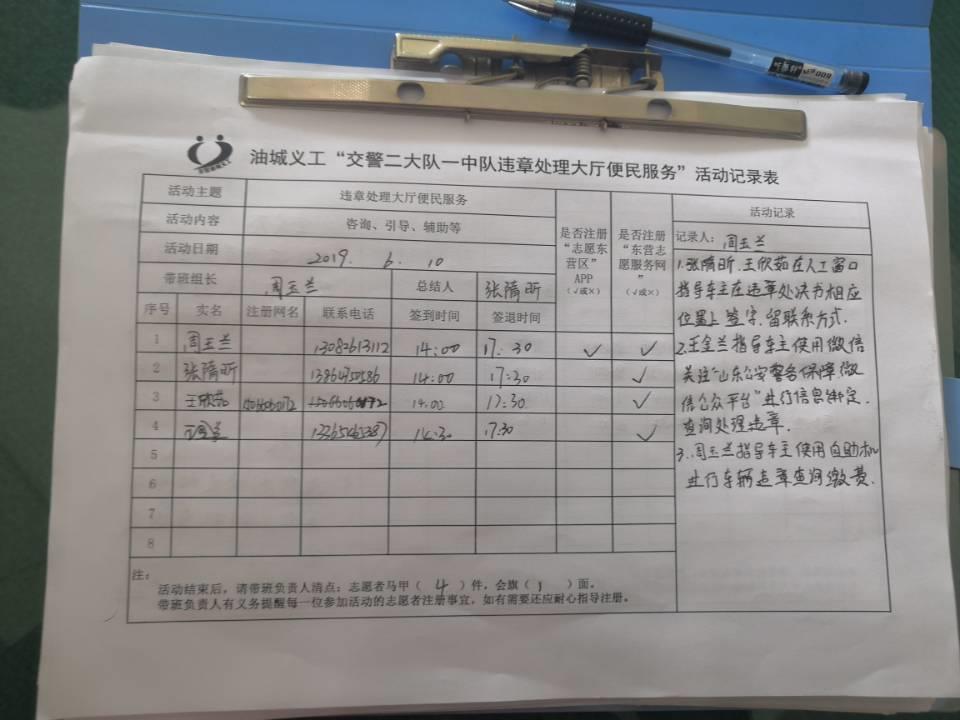 油城义工“交警二大队一中队违章处理大厅便民服务”活动记录表
活动主题 违章处理大厅便民服务
活动内容 咨询、引导、辅助等
活动日期 2019. 6. 10
带班组长 周玉兰 总结人 张隋昕
序号 实名 注册网名 联系电话 签到时间 签退时间 是否注册“志愿东营区”APP（√或×） 是否注册“东营志愿服务网”（√或×）
1 周玉兰 13082613112 14:00 17:30 √ √
2 张隋昕 14:00 17:30 √
3 王欣茹 14:00 17:30 √
4 14:30 17:30 √
5
6
7
8
注：
活动结束后，请带班负责人清点：志愿者马甲（ 4 ）件，会旗（ 1 ）面。
带班负责人有义务提醒每一位参加活动的志愿者注册事宜，如有需要还应耐心指导注册。
活动记录
记录人：周玉兰
1.张隋昕、王欣茹在人工窗口
指导车主在违章处决书相应
位置上签字、留联系方式.
2.王金兰指导车主使用微信
关注“山东公安警务保障微
信公众平台”进行信息绑定.
查询处理违章.
3.周玉兰指导车主使用自助机
进行车辆违章查询缴费.